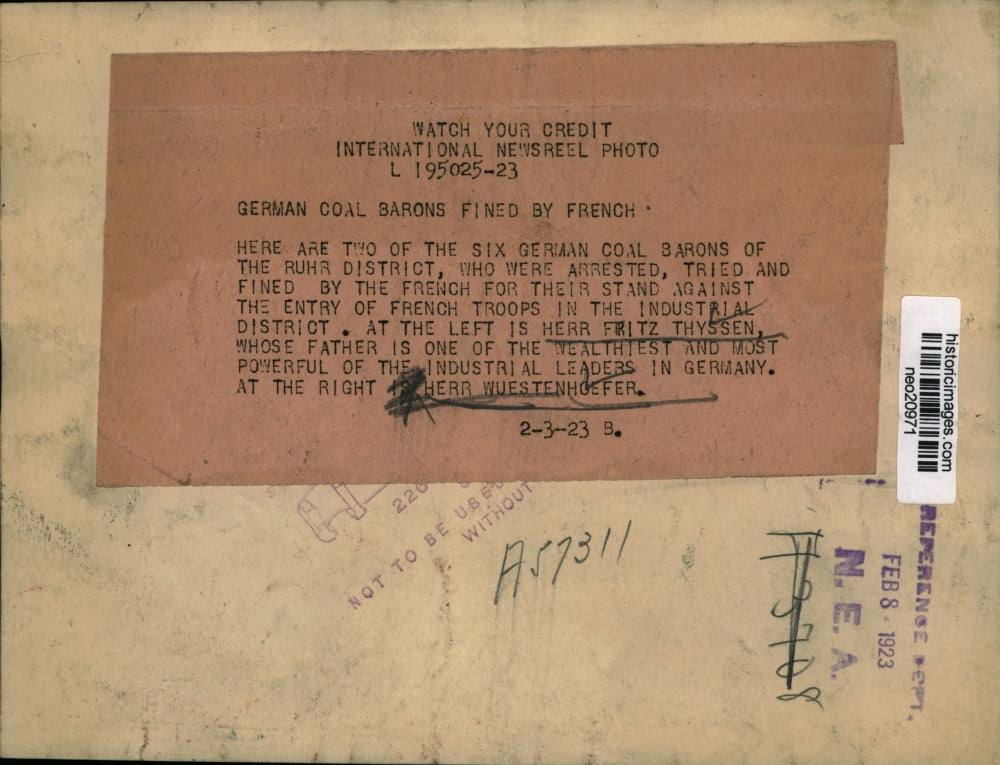 WATCH YOUR CREDIT
INTERNATIONAL NEWSREEL PHOTO
L 195025-23
GERMAN COAL BARONS FINED BY FRENCH
HERE ARE TWO OF THE SIX GERMAN COAL BARONS OF
THE RUHR DISTRICT, WHO WERE ARRESTED, TRIED AND
FINED BY THE FRENCH FOR THEIR STAND AGAINST
THE ENTRY OF FRENCH TROOPS IN THE INDUSTRIAL
DISTRICT. AT THE LEFT IS HERR FRITZ THYSSEN,
WHOSE FATHER IS ONE OF THE WEALTHIEST AND MOST
POWERFUL OF THE INDUSTRIAL LEADERS IN GERMANY.
AT THE RIGHT IS HERR WUESTENHOEFER.
2-3-23 B.
226
NOT TO BE USED
WITHOUT
A57311
historicimages.com
neo20971
REFERENCE DEPT.
FEB 8 - 1923
N. E. A.